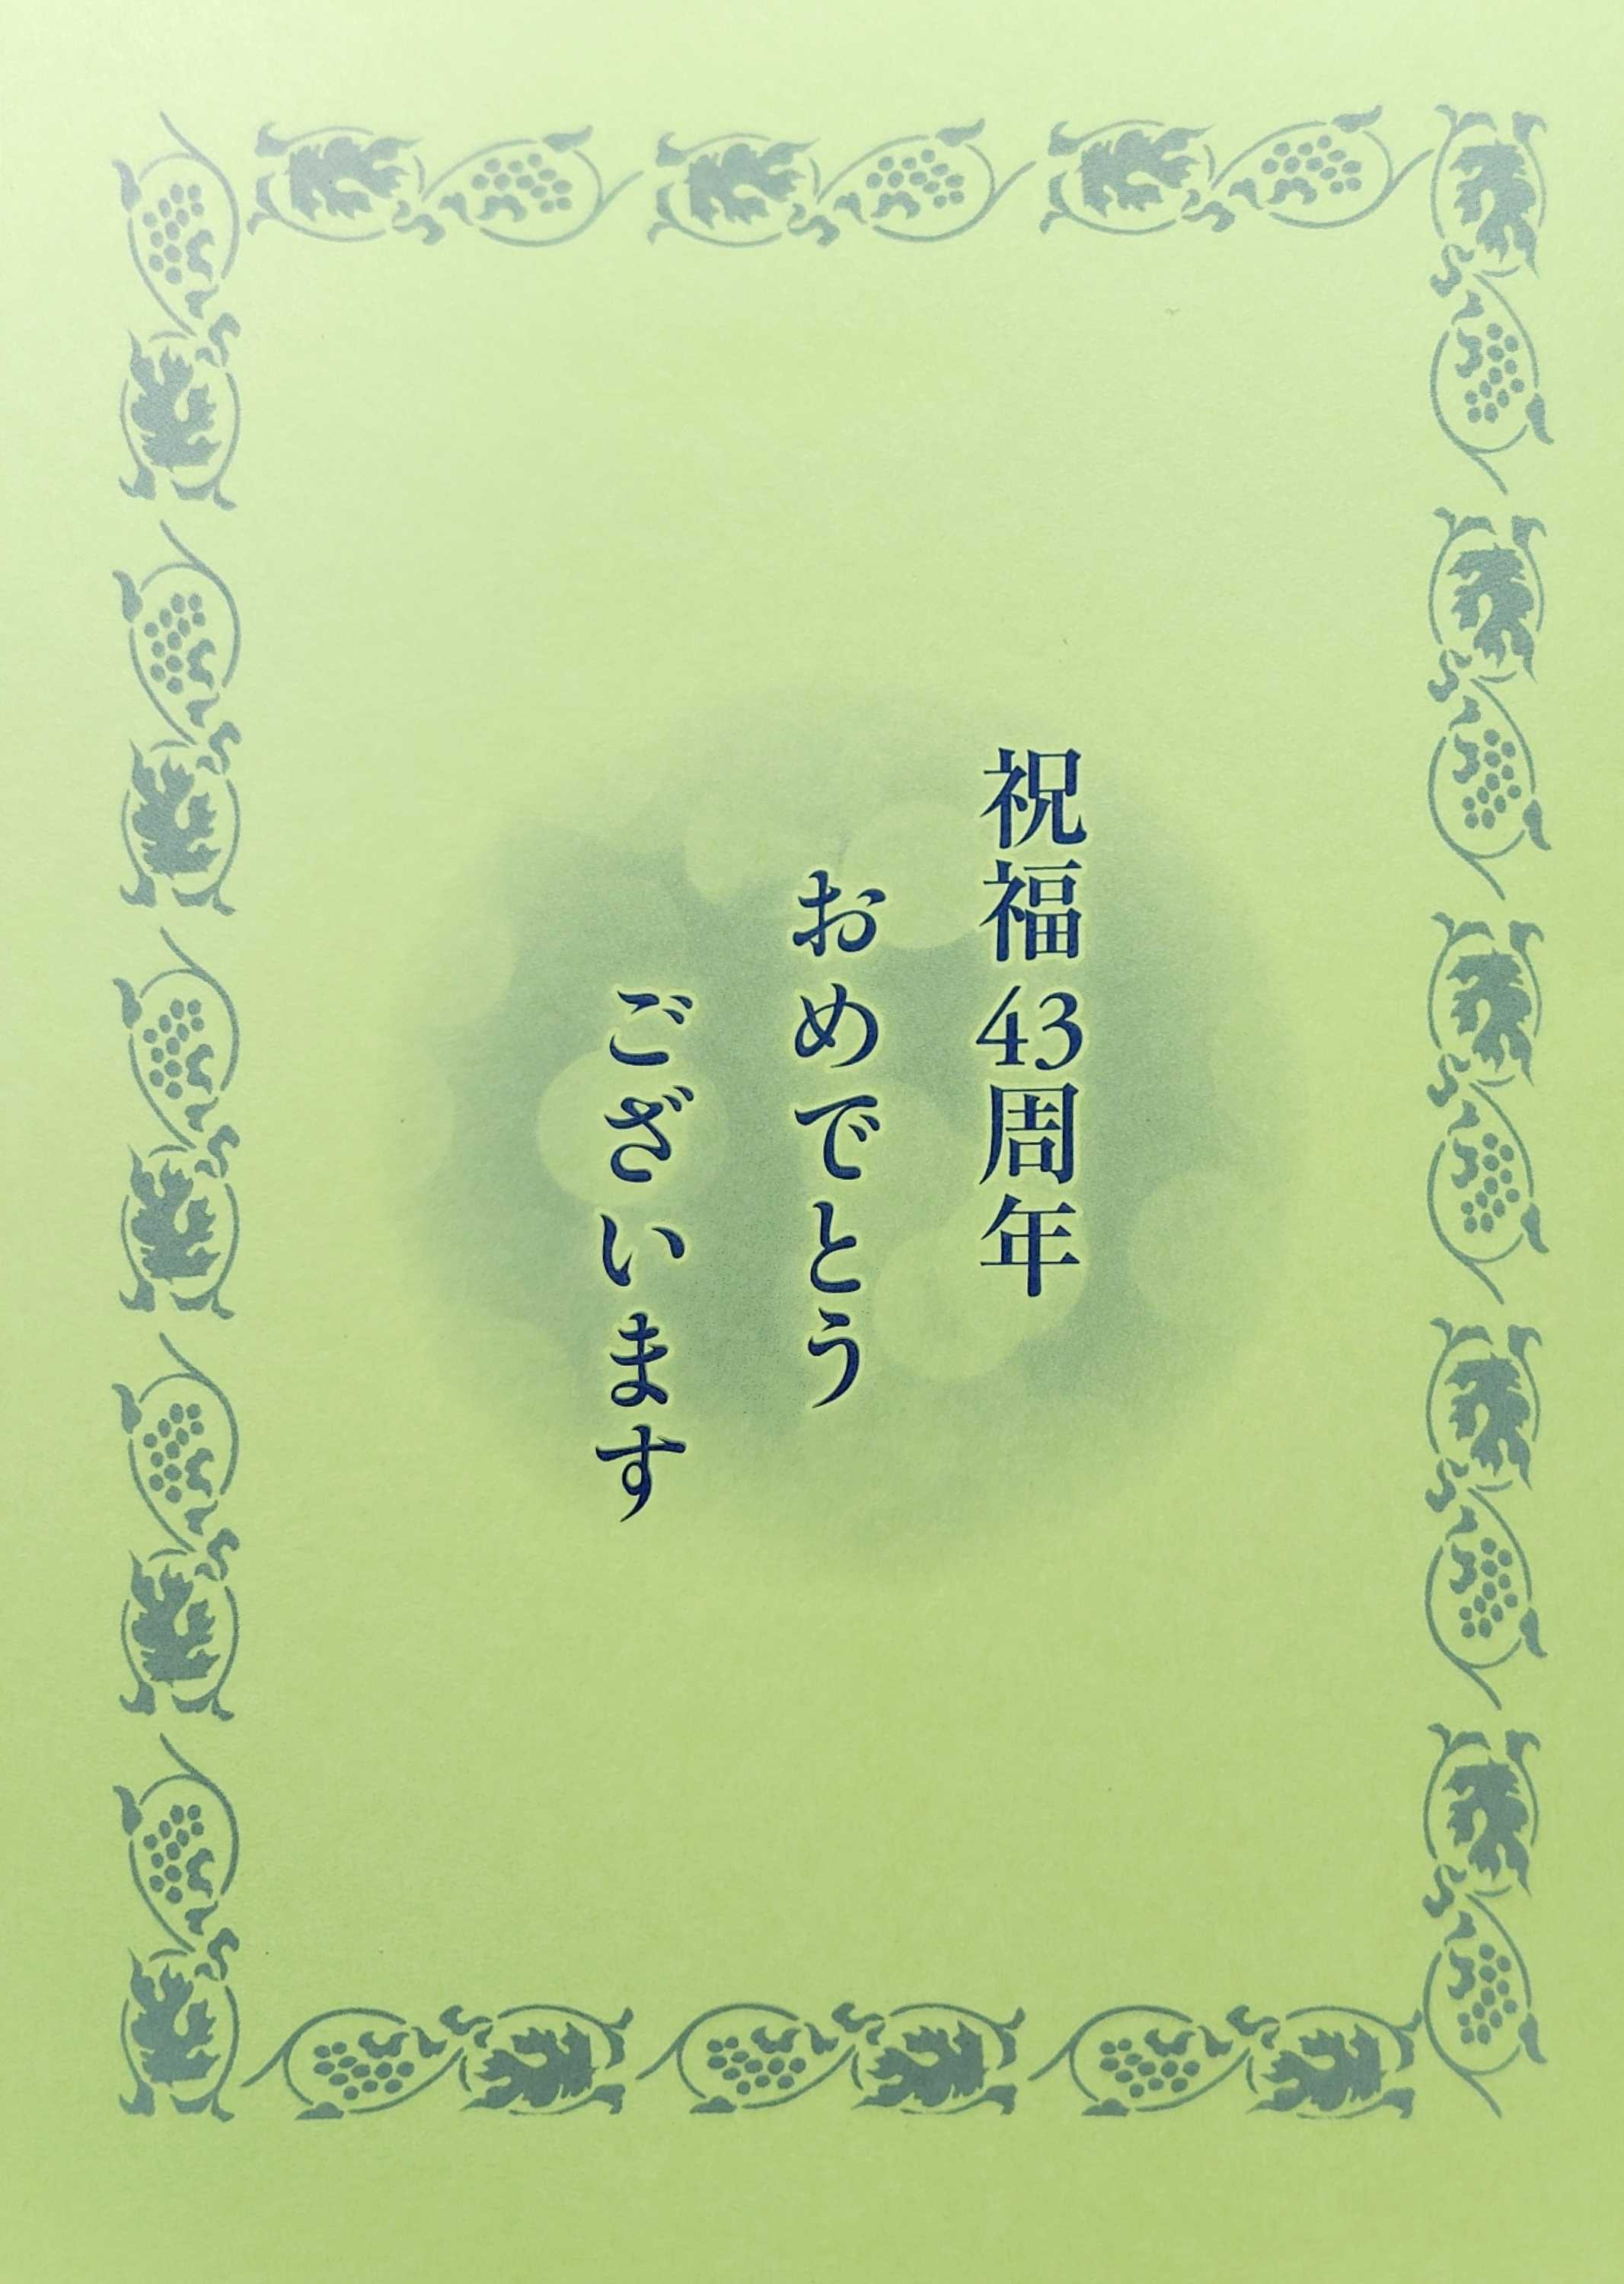 祝福43周年
おめでとう
ございます